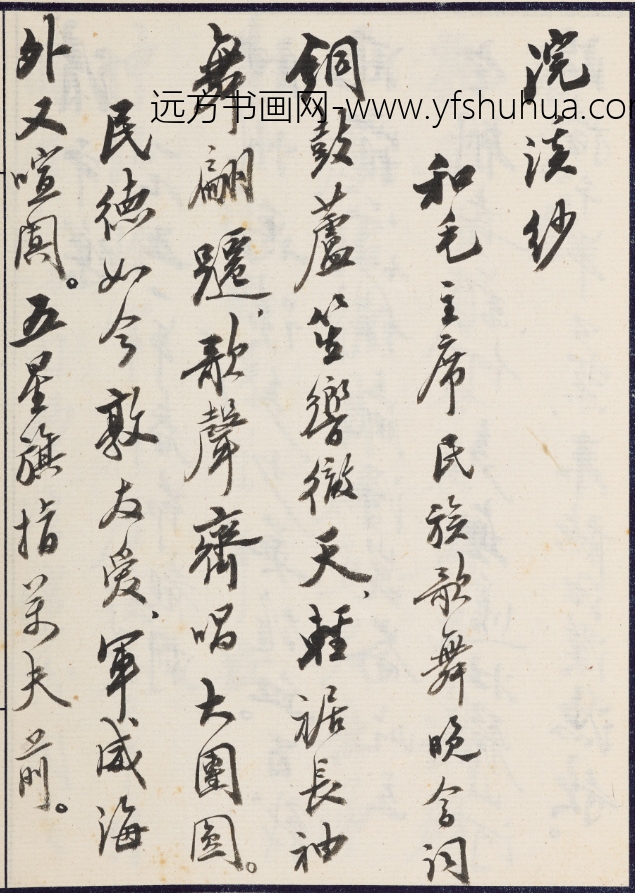 浣溪紗
和毛主席民族歌舞晚会词
銅鼓蘆笙響徹天，輕裾長袖
舞翩躚，歌聲齊唱大團圓。
民德如今敦友爱，軍威海
外又喧闐。五星旗指萬夫前。
远方书画网-www.yfshuhua.co